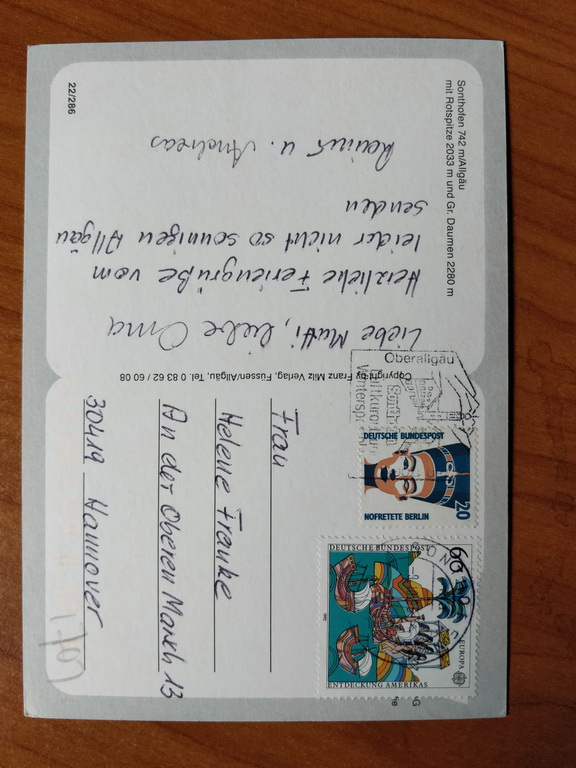 Sonthofen 742 m/Allgäu
mit Rotspitze 2033 m und Gr. Daumen 2280 m
Liebe Mutti, liebe Oma
Herzliche Feriengrüße vom
leider nicht so sonnigen Allgäu
senden
u. Andreas
22/286
Copyright by Franz Milz Verlag, Füssen/Allgäu, Tel. 0 83 62 / 60 08
Oberallgäu
DEUTSCHE BUNDESPOST
20
NOFRETETE BERLIN
DEUTSCHE BUNDESPOST
60
EUROPA
ENTDECKUNG AMERIKAS
Frau
Helene Franke
An der Oberen Marsch 13
30419 Hannover